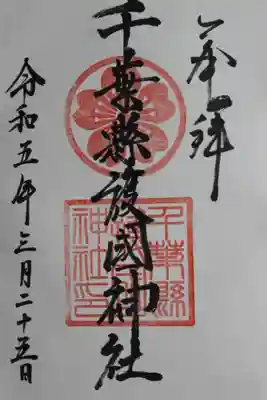 奉拝
千葉縣護國神社
千葉縣護國神社印
令和五年三月二十五日